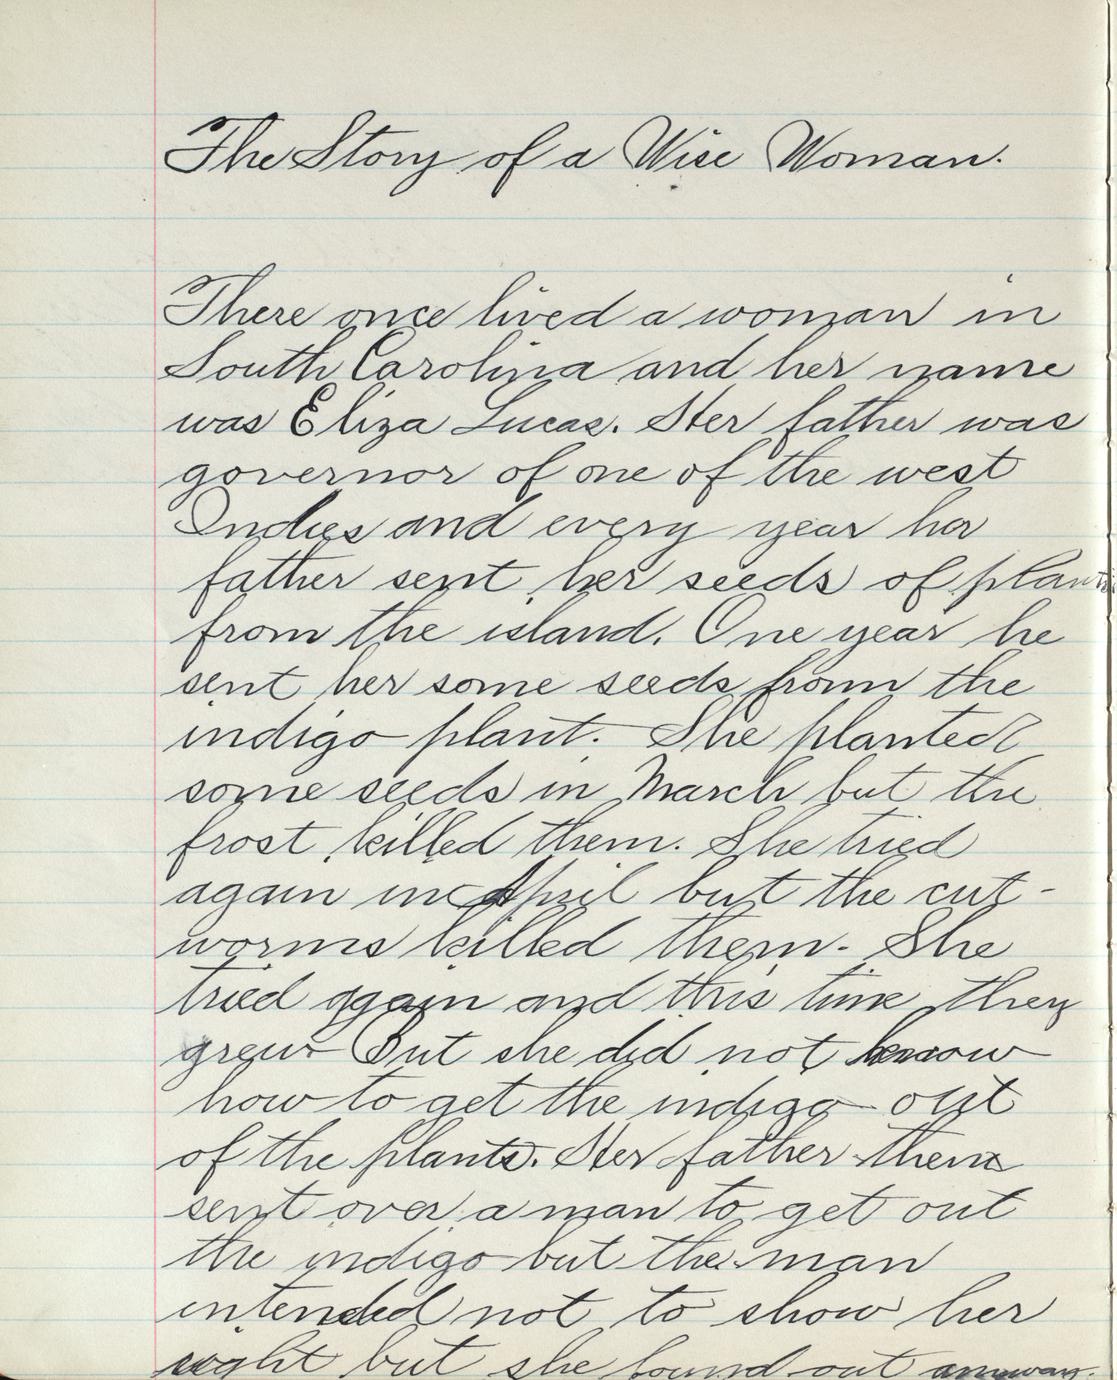 The Story of a Wise Woman.
There once lived a woman in
South Carolina and her name
was Eliza Lucas. Her father was
governor of one of the west
Indies and every year her
father sent her seeds of plants
from the island. One year he
sent her some seeds from the
indigo plant. She planted
some seeds in March but the
frost killed them. She tried
again in April but the cut-
worms killed them. She
tried again and this time they
grew But she did not know
how to get the indigo out
of the plants. Her father then
sent over a man to get out
the indigo but the man
intended not to show her
right but she found out anyway.